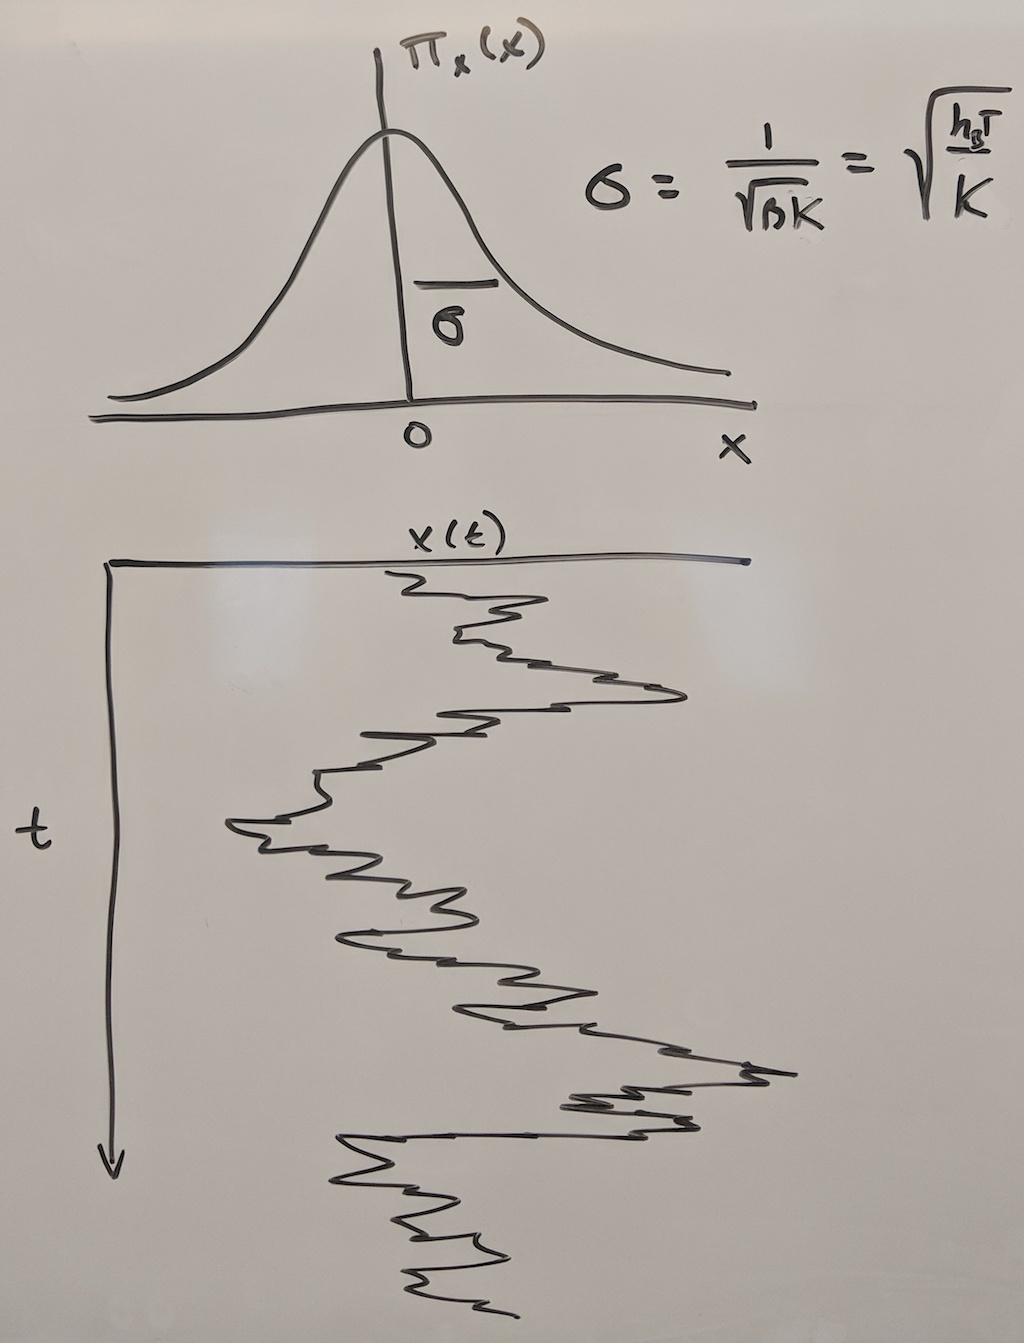 Π_x(x)
σ = 1/√βK = √(k_BT/K)
σ
0
x
x(t)
t